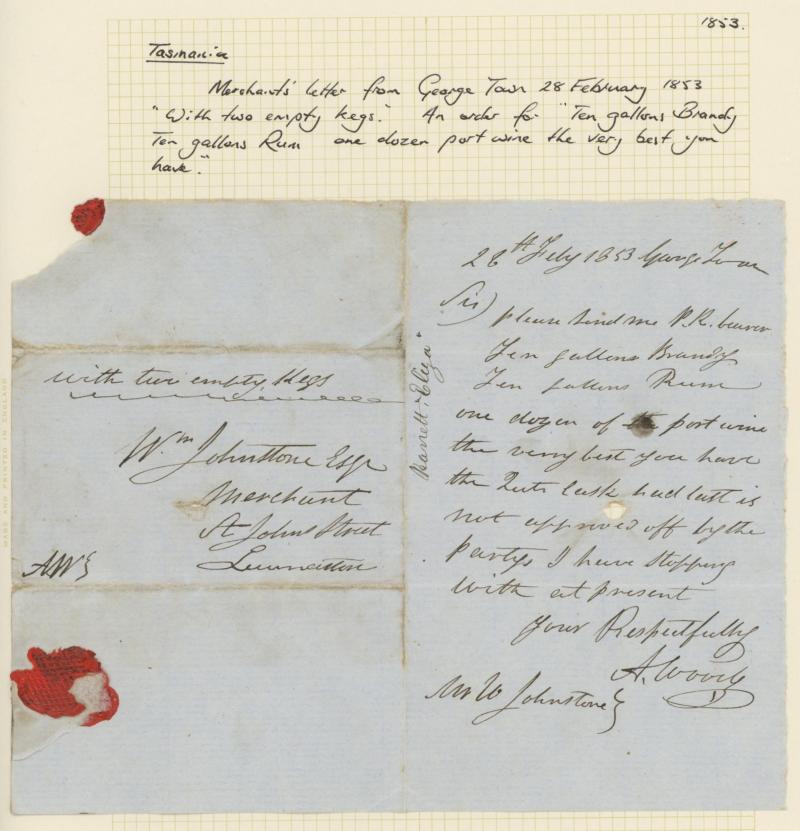 1853.
Tasmania
Merchant's letter from George Town 28 February 1853
"With two empty kegs." An order for "Ten gallons Brandy
Ten gallons Rum one dozen port wine the very best you
have."
with two empty Kegs
Wm Johnstone Esqr
Merchant
St Johns Street
Launceston
AW
MADE AND PRINTED IN ENGLAND
Barrett "Eliza"
28th Feby 1853 George Town
Sir)
please send me P.R. bearer
Ten gallons Brandy
Ten gallons Rum
one dozen of the port wine
the very best you have
the Qutr Cask had last is
not approved off by the
partys I have stopping
with at present
your Respectfully
A. Wood
Mr W Johnstone